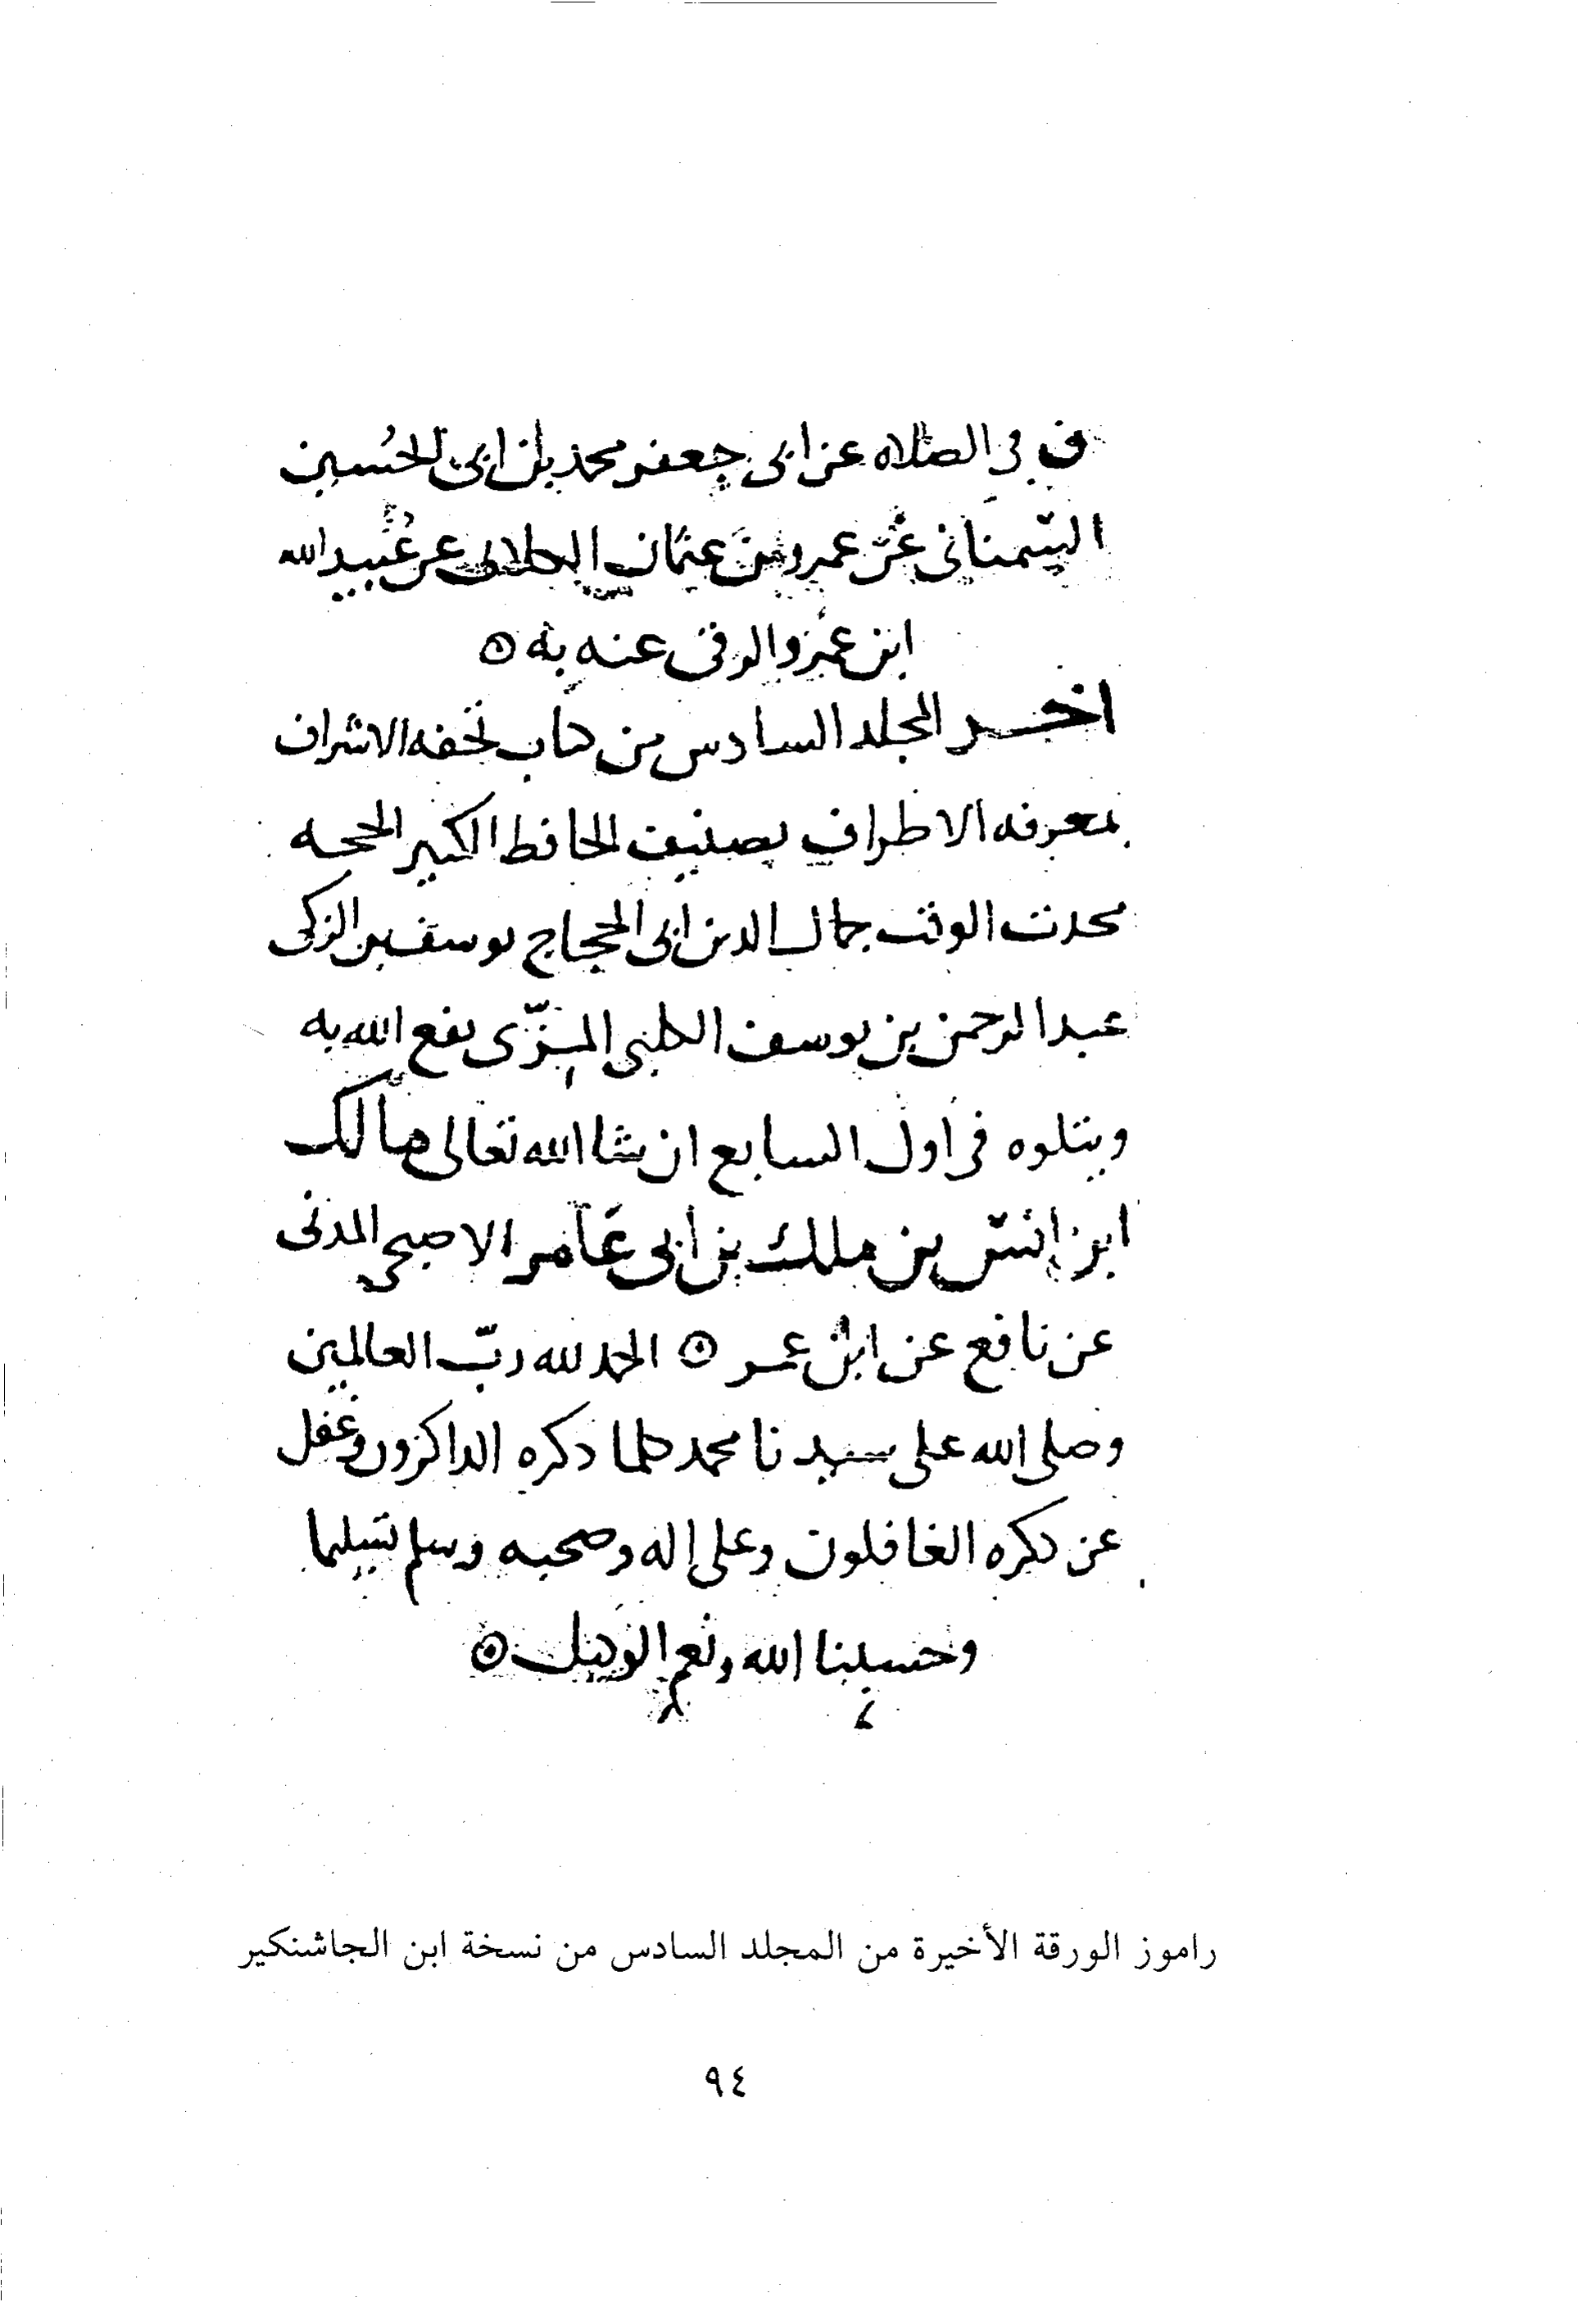 ق في الصلاه عن ابي جعفر محمد بن ابي الحُسين
السِّمناني عن عمرو بن عثمان الكلابي عن عُبيد الله
ابن عمرو الرقي عنه به
اخر المجلد السادس من كتاب تحفه الاشراف
بمعرفه الاطراف تصنيف الحافظ الكبير الحجه
محدث الوقت جمال الدين ابي الحجاج يوسف بن الزكي
عبد الرحمن بن يوسف الكلبي المِزّي نفع الله به
ويتلوه في اول السابع ان شا الله تعالى مالك
ابن انس بن ملك بن ابي عامر الاصبحي المدني
عن نافع عن ابن عمر الحمد لله ربّ العالمين
وصلى الله على سيدنا محمد كلما ذكره الذاكرون وغفل
عن ذكره الغافلون وعلى اله وصحبه وسلم تسليما
وحسبنا الله ونعم الوكيل
راموز الورقة الأخيرة من المجلد السادس من نسخة ابن الجاشنكير
٩٤